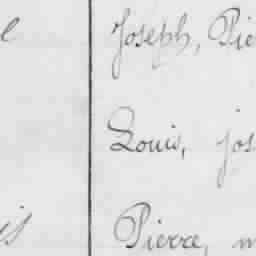 Joseph, Pie
Louis, jos
Pierre, m